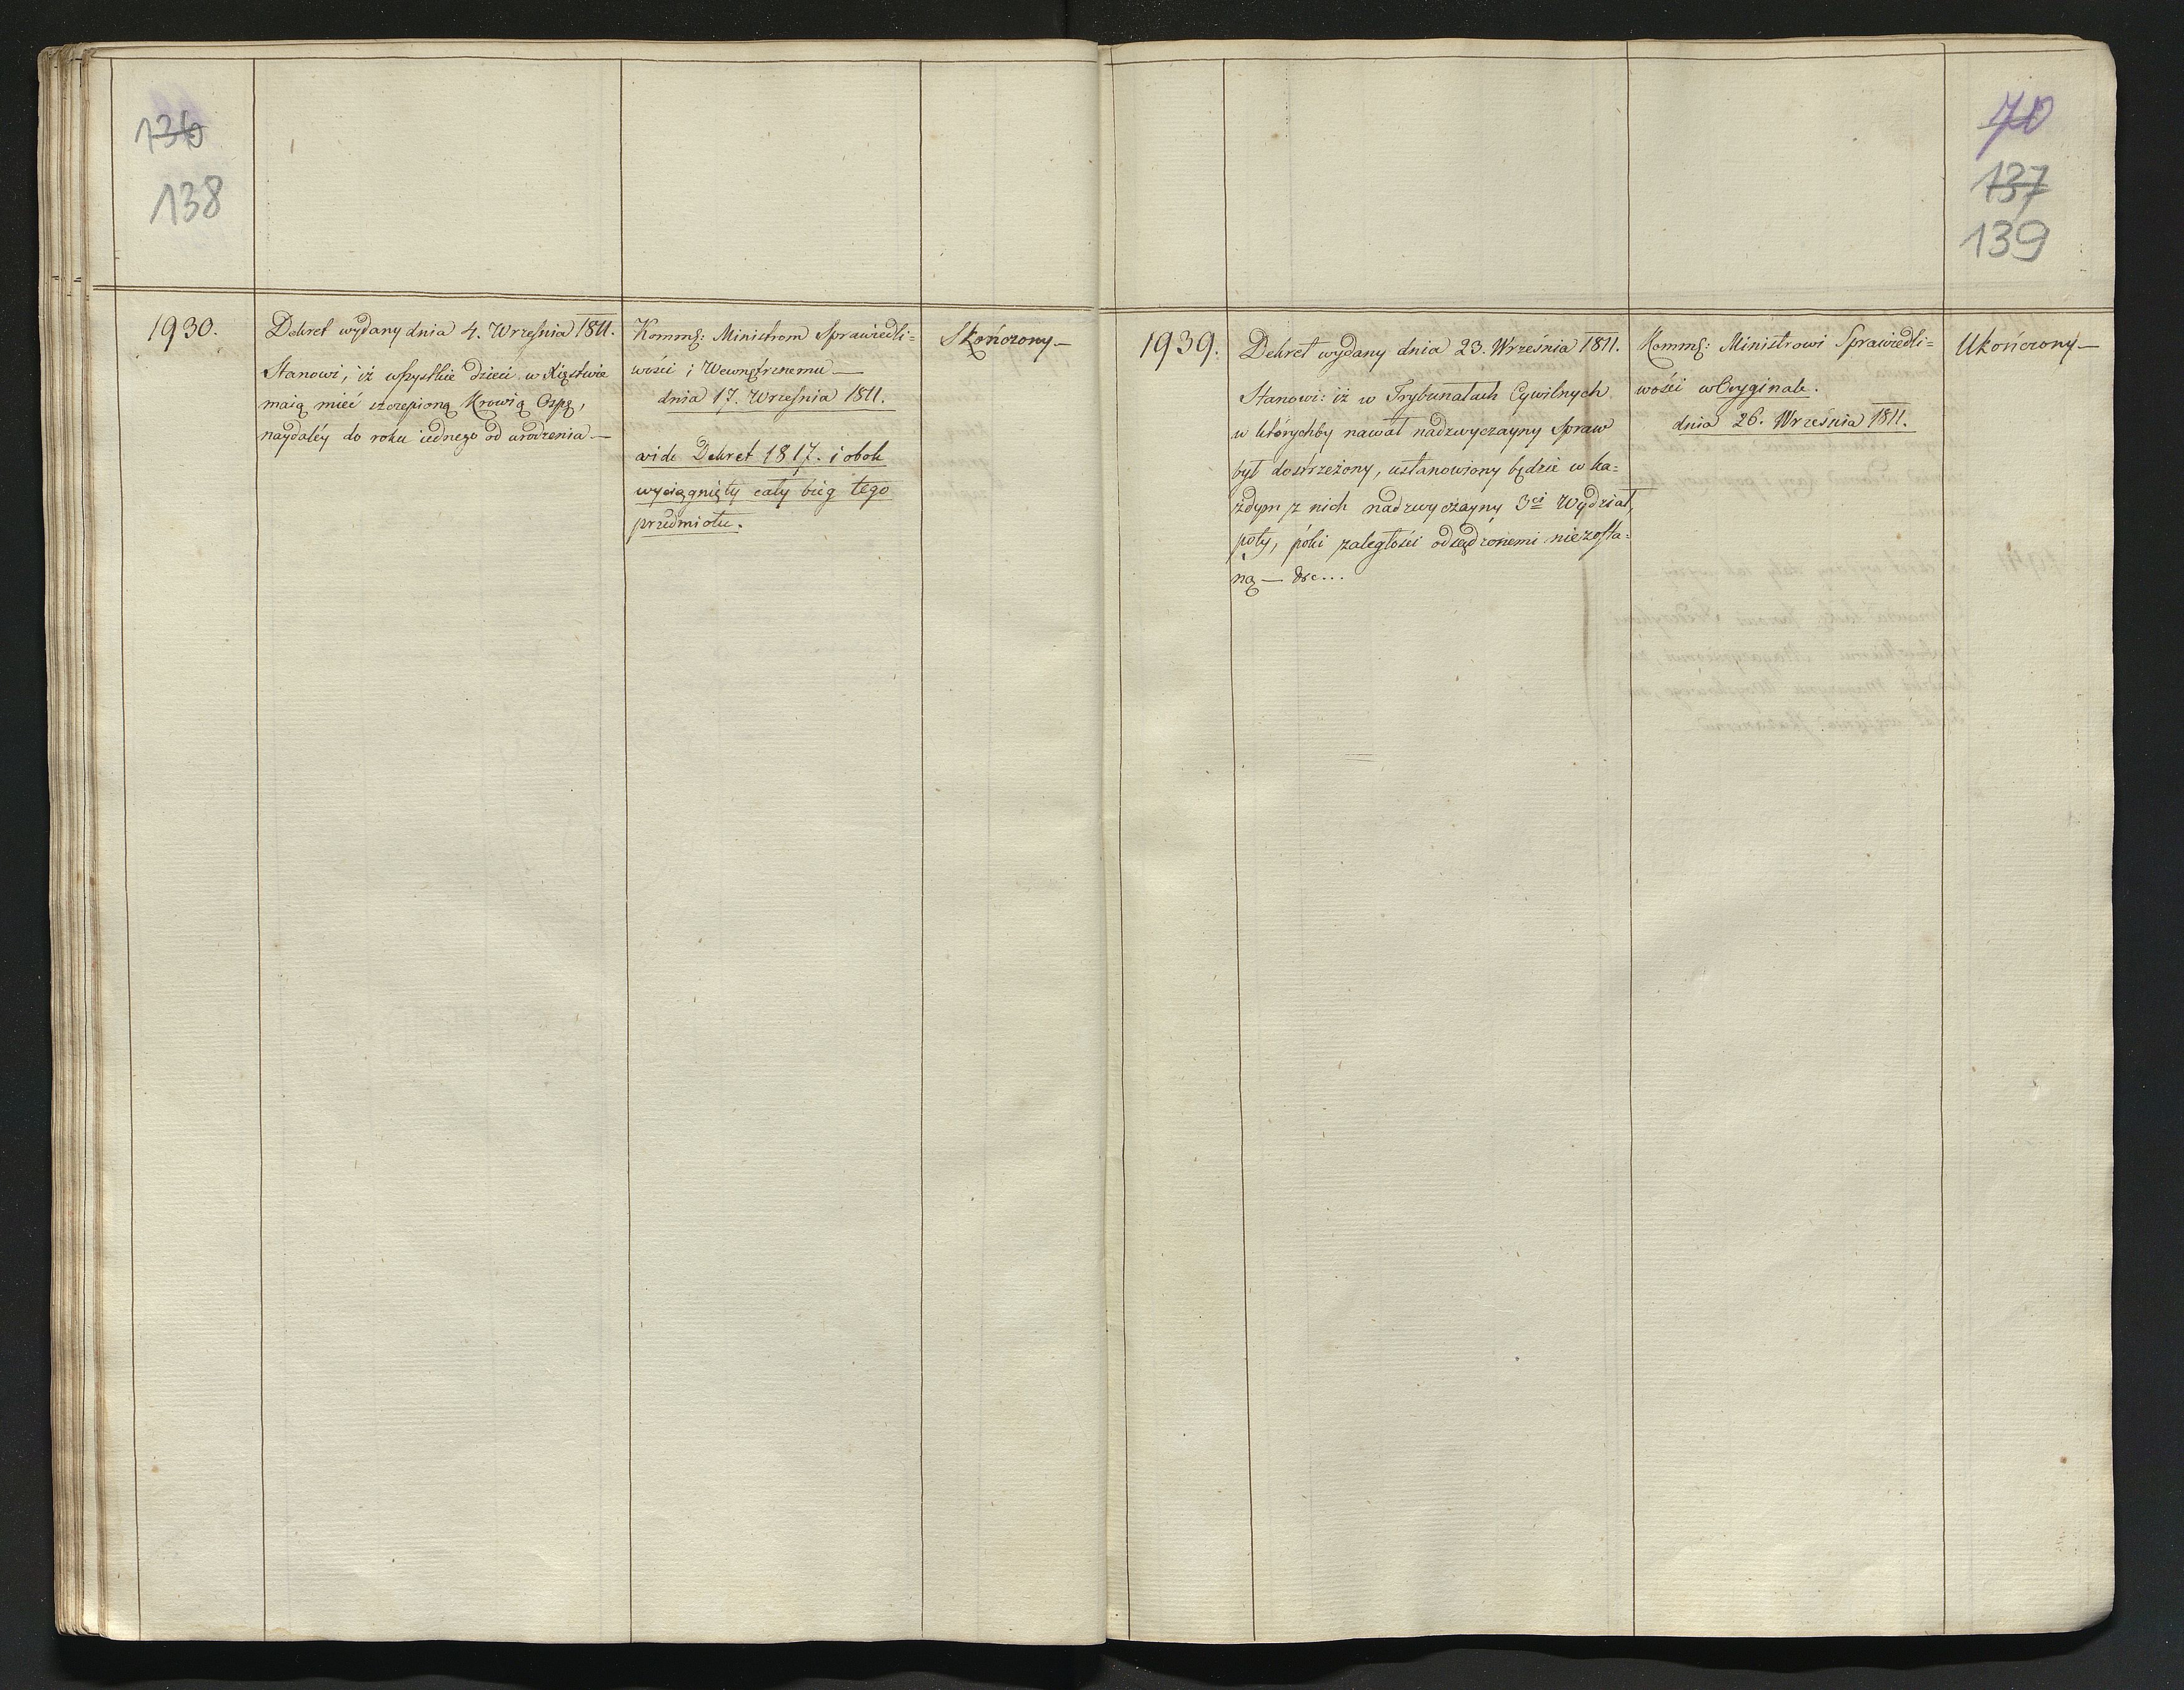 136
138
1930.
Dekret wydany dnia 4. Września 1811.
Stanowi, iż wszystkie dzieci w Xięstwie
maią mieć szczepioną Krowią Ospę,
naydaléy do roku iednego od urodzenia —
Kommg: Ministrom Sprawiedli=
wości i Wewnętrznemu —
dnia 17. Września 1811.
vide Dekret 1817. i obok
wyciągnięty cały bieg tego
przedmiotu.
Skończony —
70
137
139
1939.
Dekret wydany dnia 23. Września 1811.
Stanowi: iż w Trybunałach Cywilnych
w którychby nawał nadzwyczayny Spraw
był dostrzeżony, ustanowiony będzie w ka=
żdym z nich nadzwyczayny 3ci Wydział,
póty, póki zaległości odsądzonemi niezosta=
ną — &c...
Kommg: Ministrowi Sprawiedli=
wości w Oryginale.
dnia 26. Września 1811.
Ukończony —